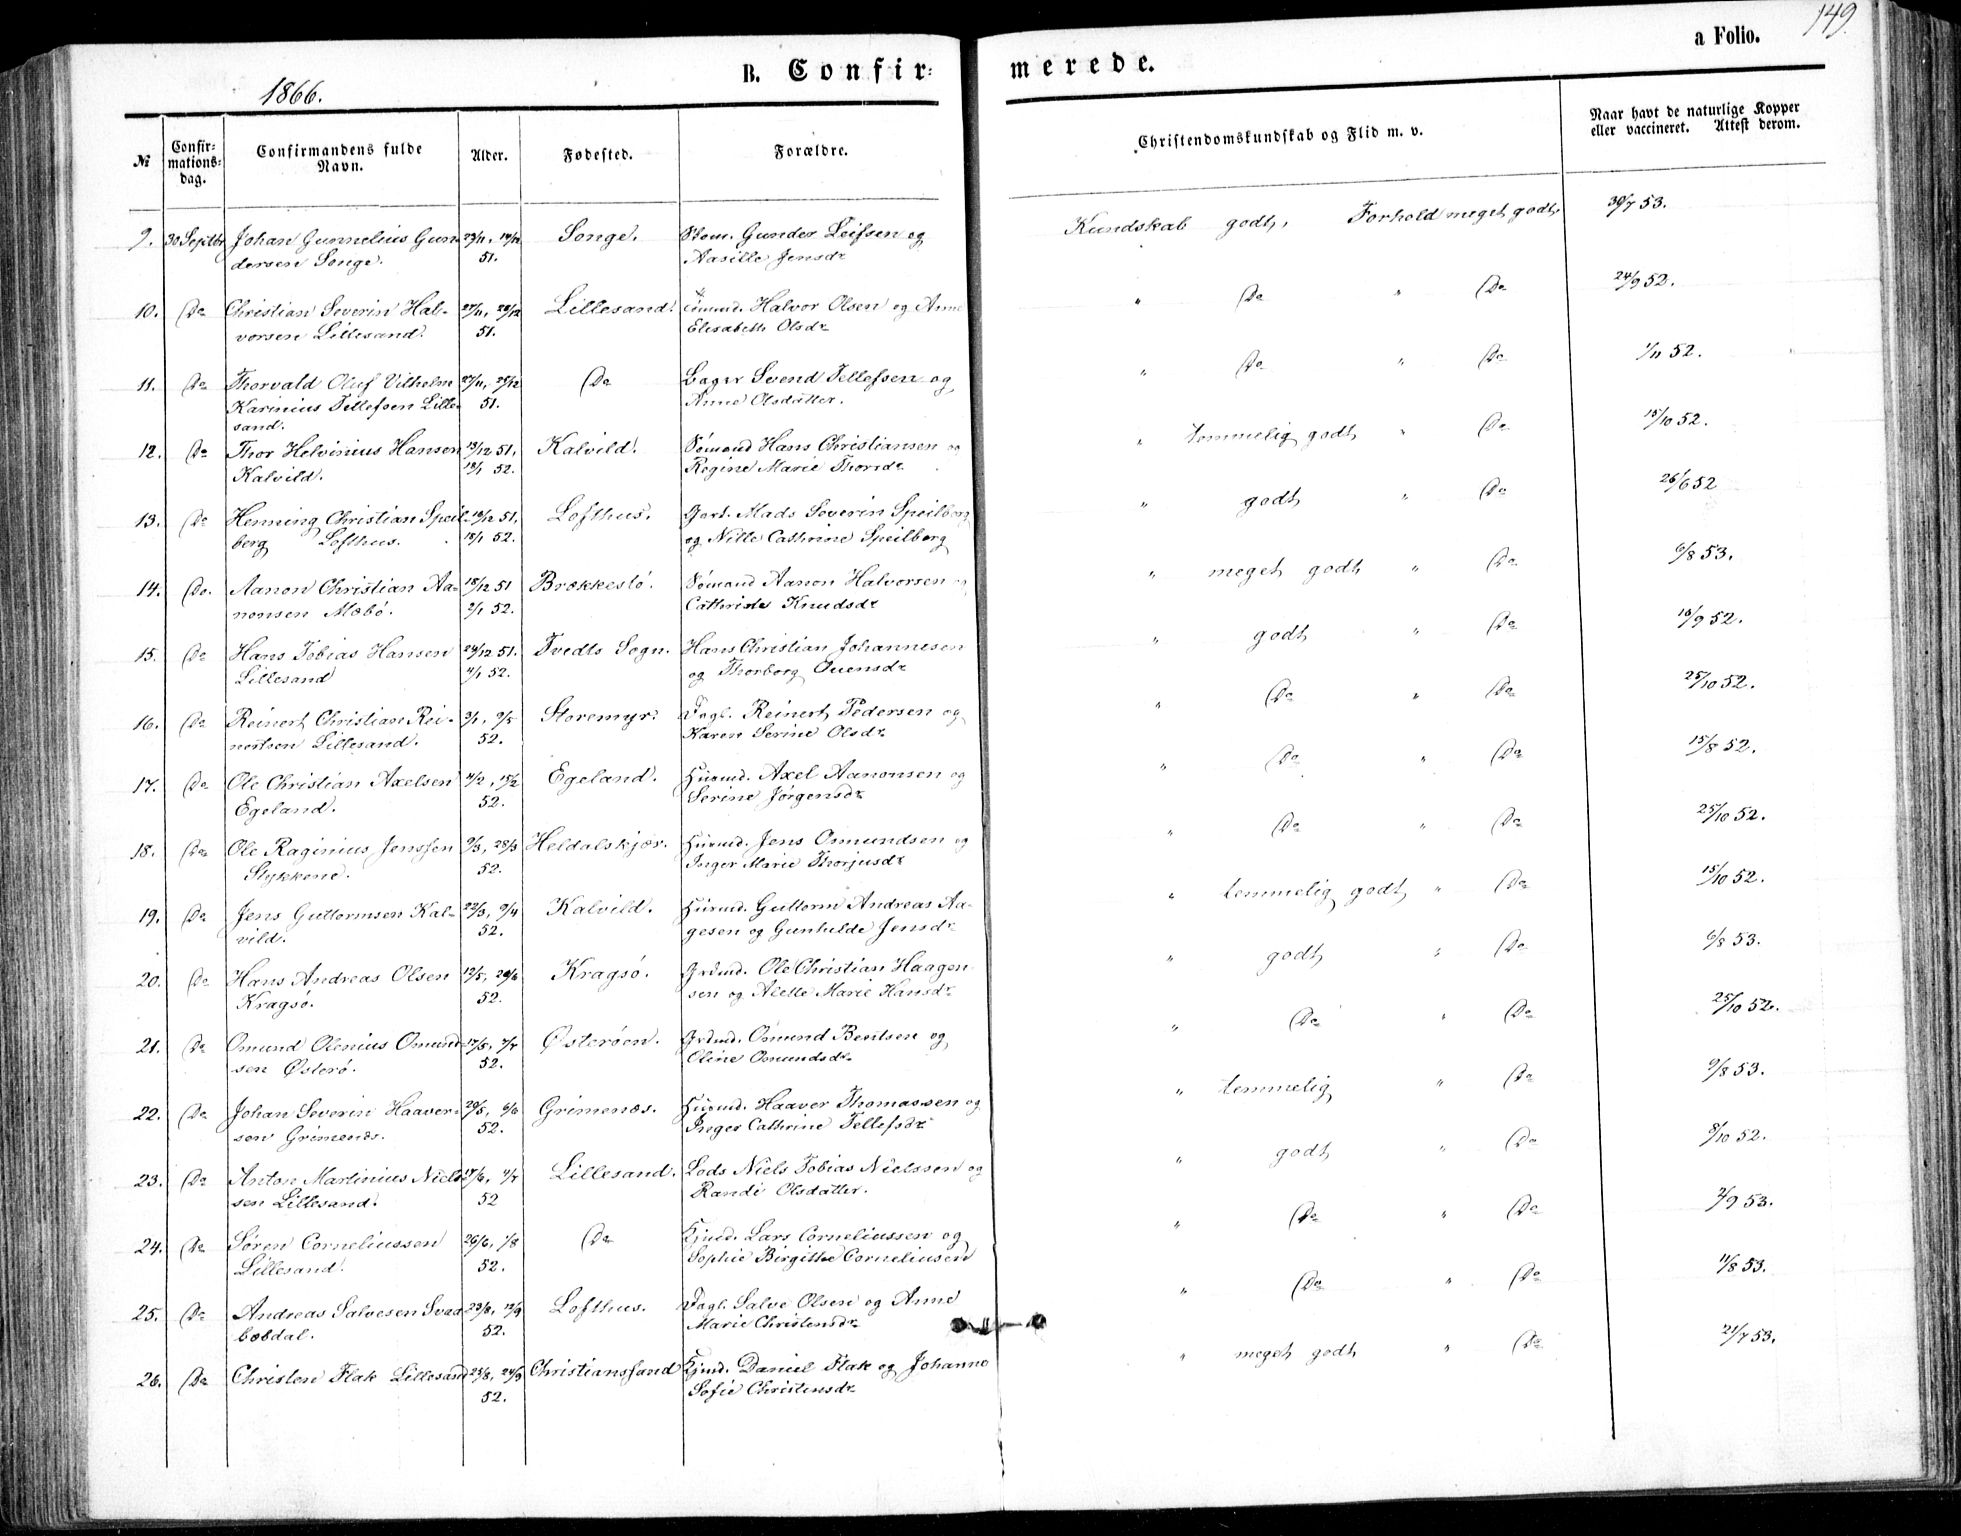 149.
a Folio.
B. Confir-
merede.
1866.
№
Confir-
mations-
dag.
Confirmandens fulde
Navn.
Alder.
Fødested.
Forældre.
Christendomskundskab og Flid m. v.
Naar havt de naturlige Kopper
eller vaccineret. Attest derom.
9. 30 Septbr Johan Gunnelius Gun- 23/11, 14/12 Songe. Gunder Leifsen og Kundskab godt, Forhold meget godt, 30/7 53.
dersen Songe. 51. Aasille Jensdr
10. Do Christian Severin Hal- 27/11, 28/12 Lillesand. Tømmd. Halvor Olsen og Anne " Do " Do 24/9 52.
vorsen Lillesand. 51. Elisabeth Olsdr
11. Do Thorvald Oluf Vilhelm 27/11, 25/12 Do Bager Svend Tellefsen og " Do " Do 1/11 52.
Karinius Tellefsen Lille- 51. Anne Olsdatter.
sand.
12. Do Thor Helvinius Hansen 13/12 51, Kalvild. Sømand Hans Christiansen og " temmelig godt " Do 15/10 52.
Kalvild. 18/1 52. Regine Marie Thorsdr
13. Do Henning Christian Speil- 13/12 51, Lofthus. Garl. Mads Severin Speilberg " godt " Do 26/6 52
berg Lofthus. 18/1 52. og Nille Cathrine Speilberg
14. Do. Aanon Christian Aa- 18/12 51 Brækkestø. Sømand Aanon Halvorsen og " meget godt " Do 6/8 53.
nonsen Mæbø. 2/1 52. Cathriste Knudsdr
15. Do Hans Tobias Hansen 24/12 51. Tvedts Sogn. Hans Christian Johannesen " godt " Do 18/9 52.
Lillesand 4/1 52. og Thorborg Ouensdr
16. Do Reinert Christian Rei- 9/1, 9/5 Storemyr. Dagl. Reinert Pedersen og " Do " Do 25/10 52.
nertsen Lillesand. 52. Karen Serine Olsdr
17. Do Ole Christian Axelsen 4/2, 15/2 Egeland. Huusmd. Axel Aanonsen og " Do " Do 15/8 52.
Egeland. 52. Serine Jørgensdr
18. Do Ole Raginius Jenssen 9/3, 28/3 Heldalskjær. Huusmd. Jens Omundsen og " Do " Do 25/10 52.
Stykkene. 52. Inger Marie Thorjusdr
19. Do Jens Guttormsen Kal- 22/3, 9/4 Kalvild. Huusmd. Guttorm Andreas Aa- " temmelig godt " Do 15/10 52.
vild. 52. gesen og Gunhilde Jensdr
20. Do Hans Andreas Olsen 12/5, 20/6 Kragsø. Grdmd. Ole Christian Haagen- " godt " Do 6/8 53.
Kragsø. 52. sen og Alette Marie Hansdr
21. Do Omund Olenius Omund- 17/5, 7/7 Østerøen. Grdmd. Omund Bentsen og " Do " Do 25/10 52.
sen Østerø. 52. Oline Omundsdr
22. Do Johan Severin Haaver- 29/5, 6/6 Grimenæs. Huusmd. Haaver Thomassen og " temmelig " Do 9/8 53.
sen Grimenæs. 52. Inger Cathrine Tellefsdr
23. Do Anton Martinius Niels- 17/6, 4/7 Lillesand. Lods Niels Tobias Nielssen og " godt " Do 8/10 52.
sen Lillesand. 52 Randi Olsdatter.
24. Do Søren Corneliussen 26/6, 1/8 Do Kjmd. Lars Corneliussen og " Do " Do 2/9 53.
Lillesand. 52. Sophie Birgitte Corneliusen
25. Do Andreas Salvesen Svaa- 23/8, 12/9 Lofthus. Dagl. Salve Olsen og Anne " Do " Do 11/8 53.
bæsdal. 52. Marie Christensdr
26. Do Christen Flak Lillesand 25/8, 24/9 Christianssand Kjmd. Daniel Flak og Johanne " meget godt " Do 21/7 53.
52. Sofie Christensdr